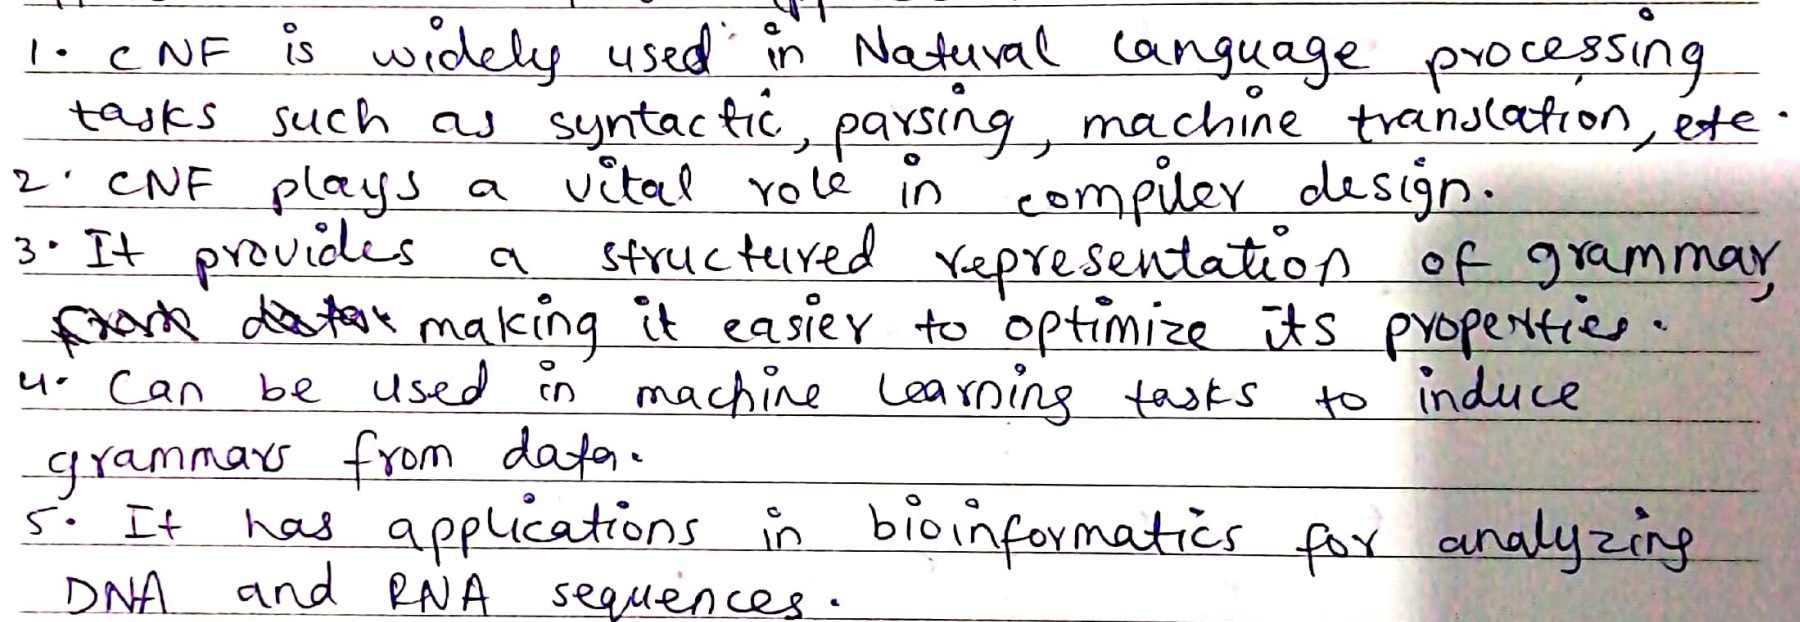 1. CNF is widely used in Natural language processing
tasks such as syntactic, parsing, machine translation, etc.
2. CNF plays a vital role in compiler design.
3. It provides a structured representation of grammar,
making it easier to optimize its properties.
4. Can be used in machine learning tasks to induce
grammars from data.
5. It has applications in bioinformatics for analyzing
DNA and RNA sequences.